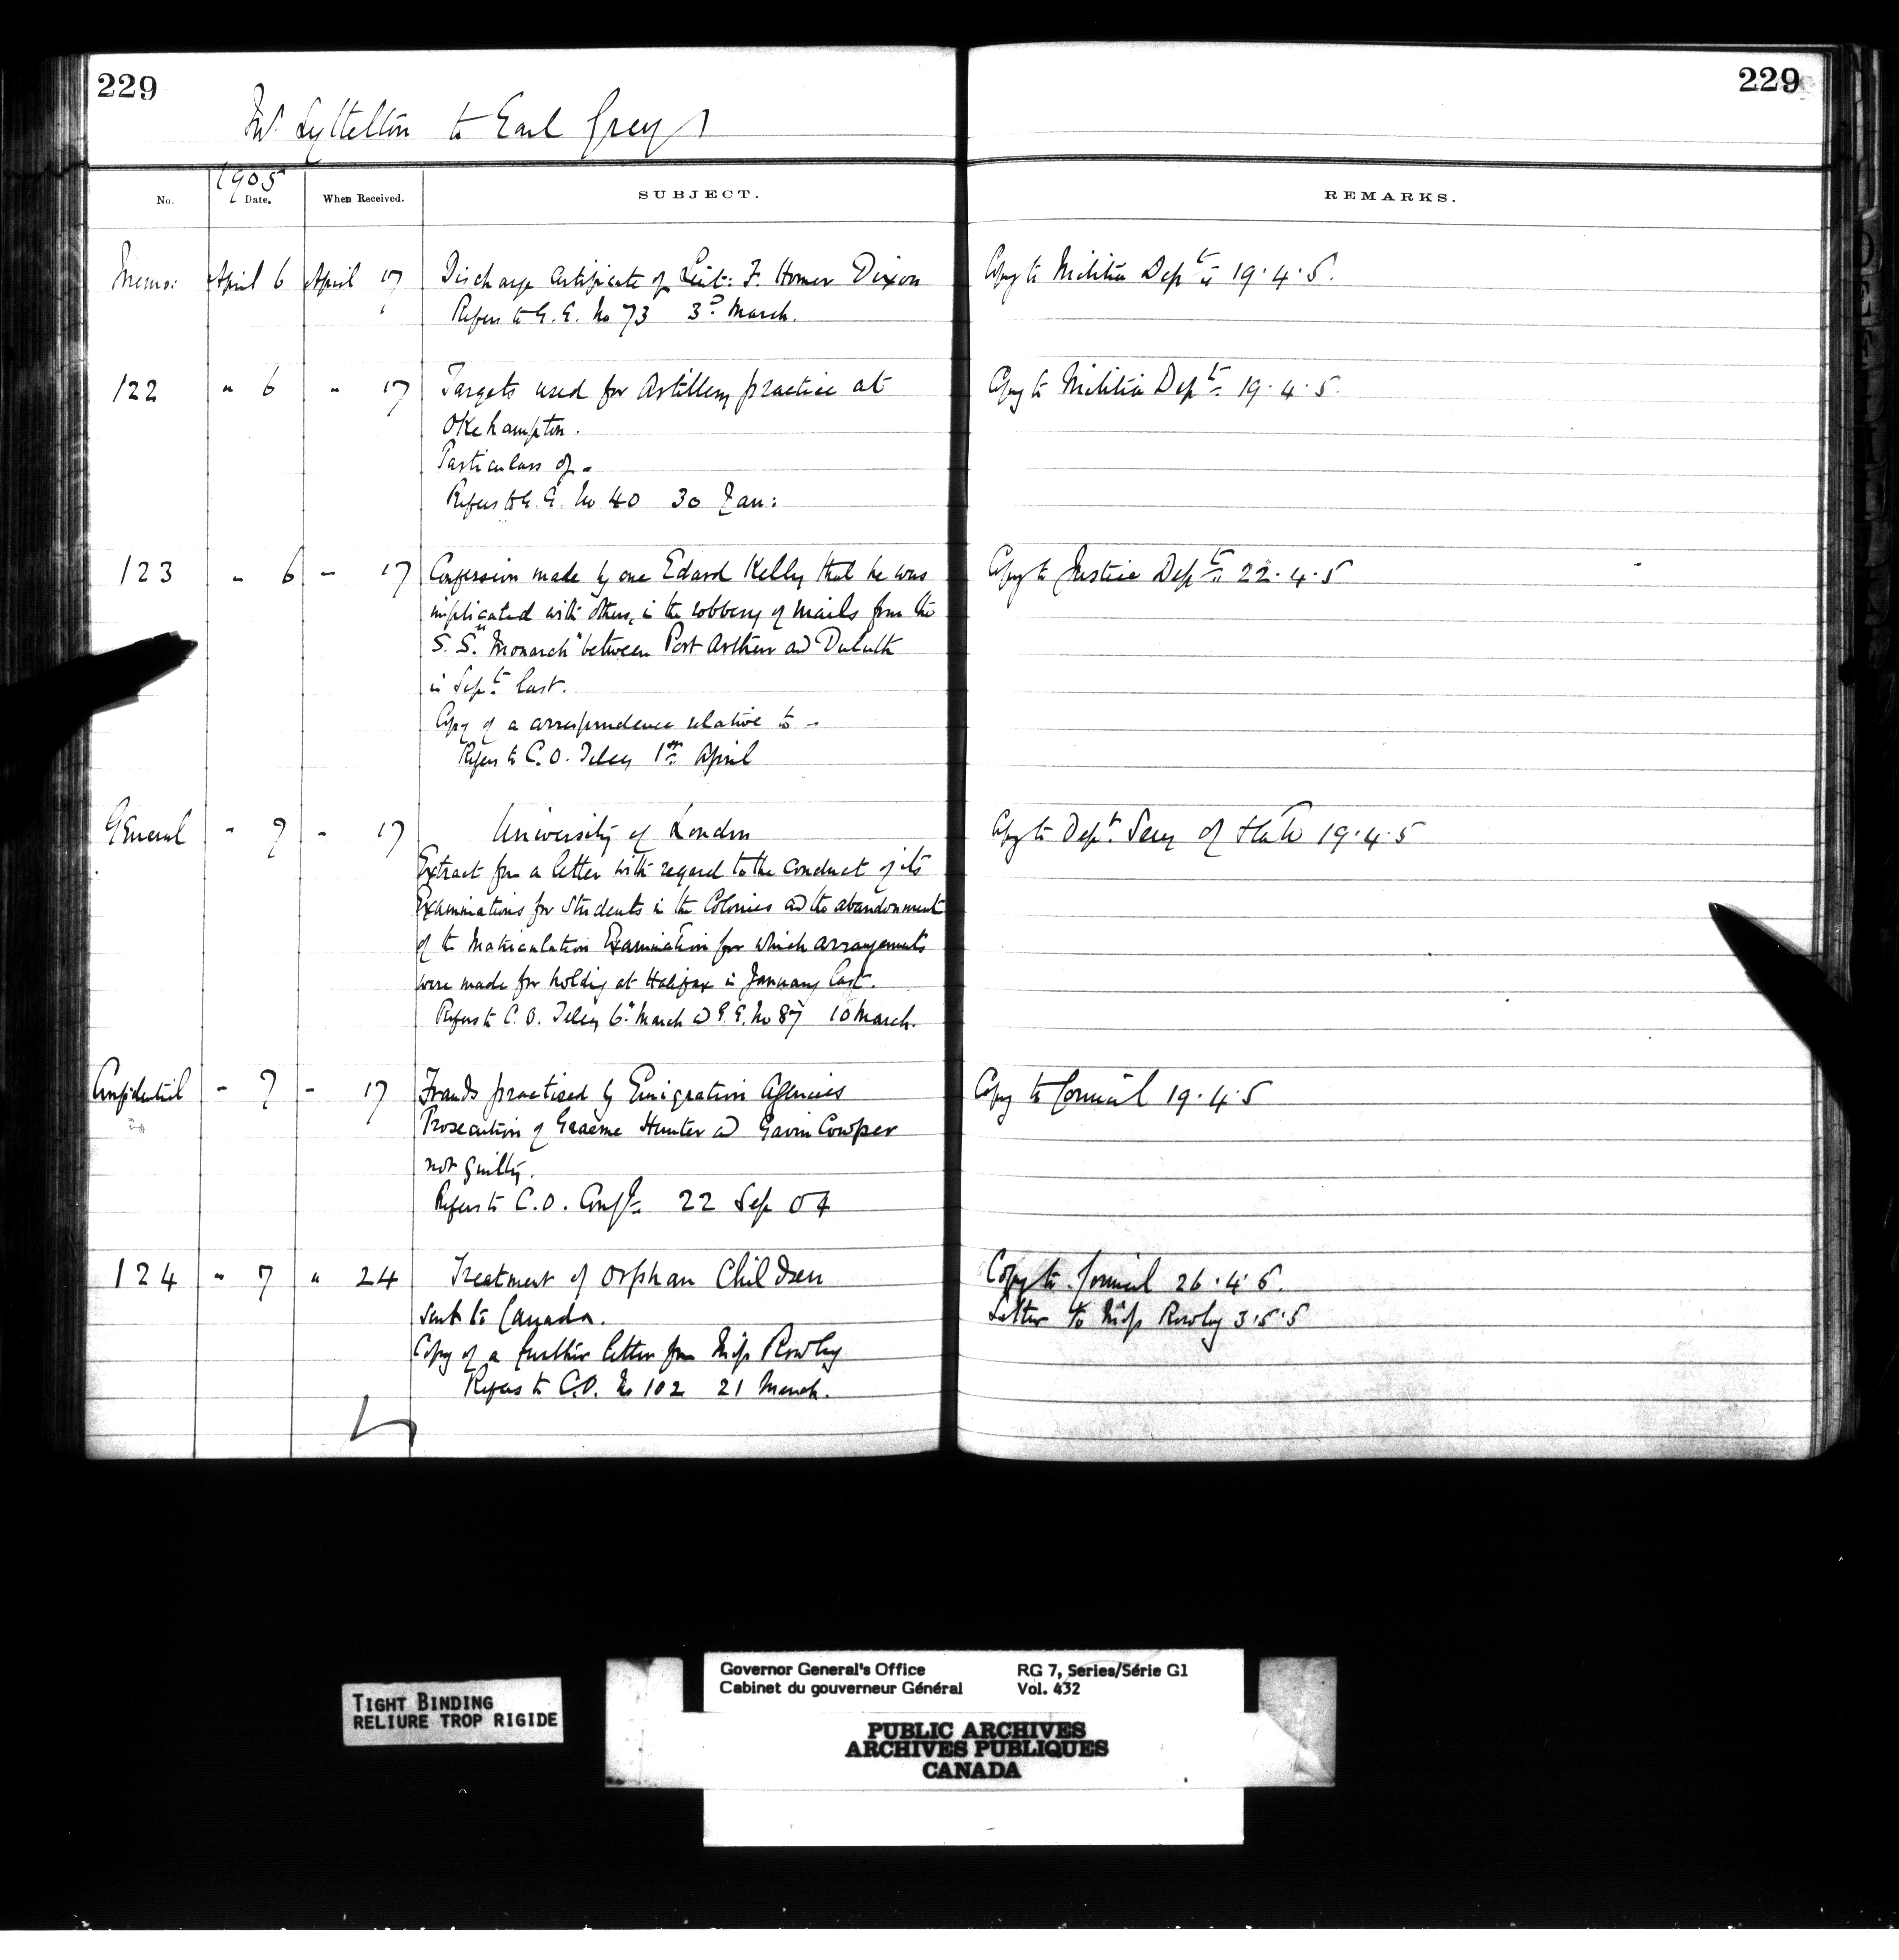 229
229
Mr. Lyttelton to Earl Grey
1905
No.
Date.
When Received.
SUBJECT.
REMARKS.
Memo: April 6 April 17 Discharge Certificate of Lieut: F. Homer Dixon Copy to Militia Dept 19.4.5.
Refers to G.G. No 73 3rd March.
122 " 6 " 17 Targets used for Artillery practice at Copy to Militia Dept 19.4.5.
Okehampton.
Particulars of -
Refers to G.G. No 40 30 Jan:
123 " 6 - 17 Confession made by one Edard Kelly that he was Copy to Justice Dept 22.4.5
implicated with others, in the robbery of mails from the
S.S. "Monarch" between Port Arthur and Duluth
in Sept last.
Copy of a correspondence relative to -
Refers to C.O. Teleg 1st April
General - 7 - 17 University of London Copy to Dept Secy of State 19.4.5
Extract from a letter with regard to the conduct of its
Examinations for Students in the Colonies and the abandonment
of the Matriculation Examination for which arrangements
were made for holding at Halifax in January last.
Refers to C.O. Teleg 6" March and G.G. No 87 10 March.
Confidential - 7 - 17 Frauds practised by Emigration Agencies Copy to Council 19.4.5
Prosecution of Graeme Hunter and Gavin Cowper
not guilty.
Refers to C.O. Confl 22 Sep 04
124 " 7 " 24 Treatment of Orphan Children Copy to Council 26.4.5.
sent to Canada. Letter to Miss Rowley 3.5.5
Copy of a further letter from Miss Rowley
Refers to C.O. No 102 21 March.
TIGHT BINDING
RELIURE TROP RIGIDE
Governor General's Office RG 7, Series/Série G1
Cabinet du gouverneur Général Vol. 432
PUBLIC ARCHIVES
ARCHIVES PUBLIQUES
CANADA